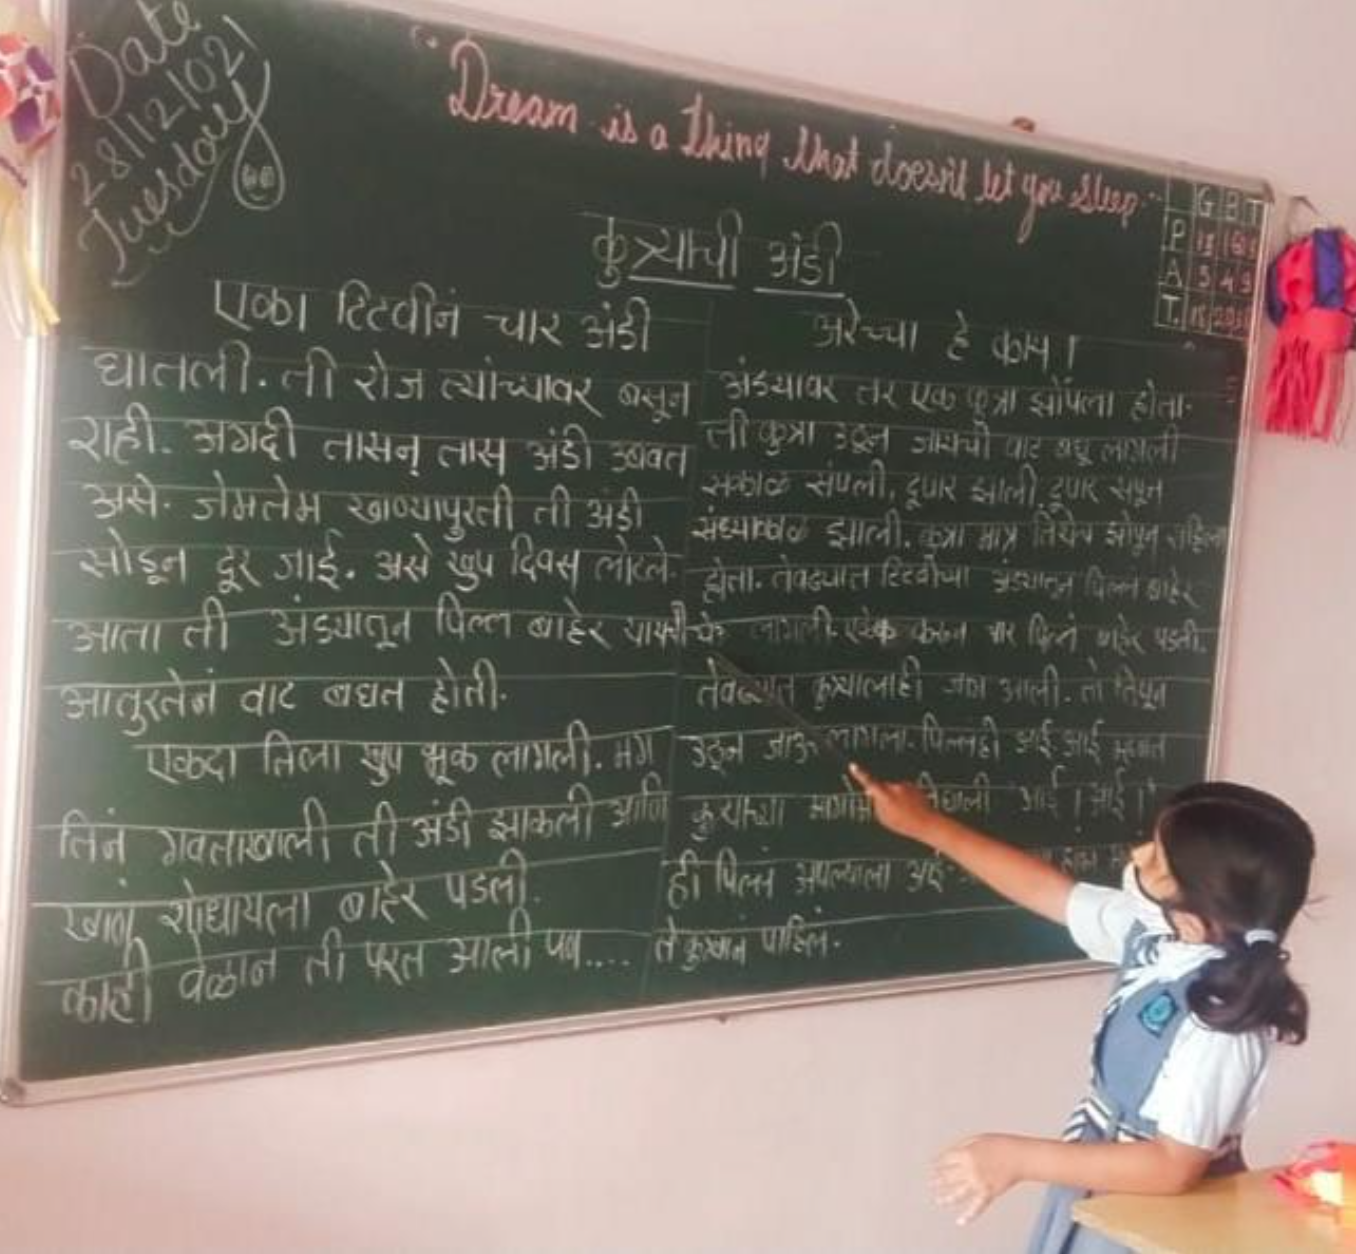 Date
28/12/021
Tuesday
"Dream is a thing that doesn't let you sleep"
G B T
P
A 3
T.
कुत्र्याची अंडी
एका टिटवीनं चार अंडी
घातली. ती रोज त्यांच्यावर बसून
राही. अगदी तासन् तास अंडी उबवत
असे. जेमतेम खाण्यापुरती ती अंडी
सोडून दूर जाई. असे खुप दिवस लोटले.
आता ती अंड्यातून पिल्ल बाहेर यायची
आतुरतेनं वाट बघत होती.
एकदा तिला खुप भूक लागली. मग
तिनं गवताखाली ती अंडी झाकली आणि
खाणं शोधायला बाहेर पडली.
काही वेळान ती परत आली पण....
अरेच्चा हे काय!
अंड्यावर तर एक कुत्रा झोपला होता.
ती कुत्रा उठून जायची वाट बघू लागली
सकाळ संपली, दूपार झाली, दूपार संपून
संध्याकाळ झाली. कुत्रा मात्र तिथेच झोपून राहिला
होता. तेवढ्यात टिटवीच्या अंड्यातून पिल्ल बाहेर
लागली. एकेक करून चार पिल्लं बाहेर पडली.
तेवढ्यात कुत्र्यालाही जाग आली. तो तिथून
उठून जाऊ लागला. पिल्लही आई आई म्हणत
कुत्र्याच्या निघाली आई! आई!
ही पिल्लं आपल्याला आई
ते कुत्र्यानं पाहिलं.